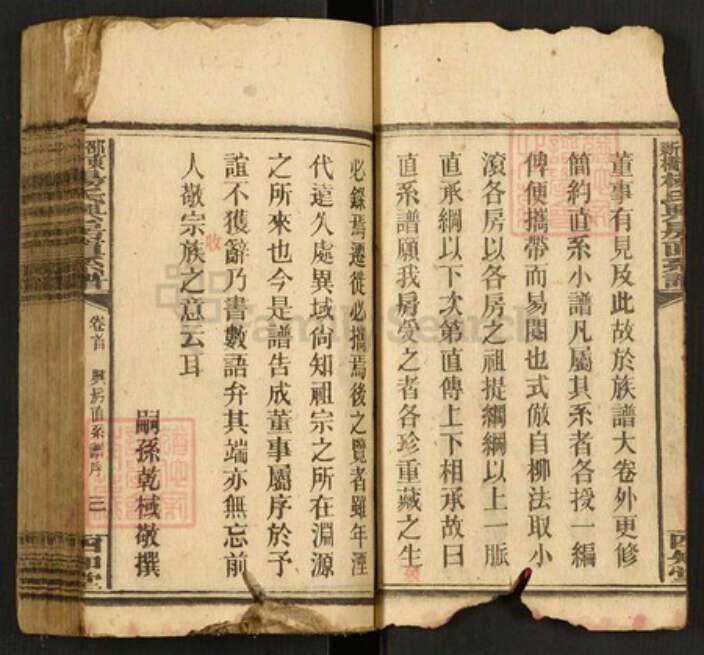 董事有見及此故於族譜大卷外更修
簡約直系小譜凡屬其系者各授一編
俾便攜帶而易閱也式倣自柳法取小
滾各房以各房之祖提綱綱以上一脈
直承綱以下次第直傳上下相承故曰
直系譜願我房受之者各珍重藏之生
必錄焉遷徙必攜焉後之覽者雖年湮
代遠久處異域尙知祖宗之所在淵源
之所來也今是譜告成董事屬序於予
誼不獲辭乃書數語弁其端亦無忘前
人敬宗族之意云耳
嗣孫乾棫敬撰
卷首
興房直系譜序
三
四知堂
FamilySearch